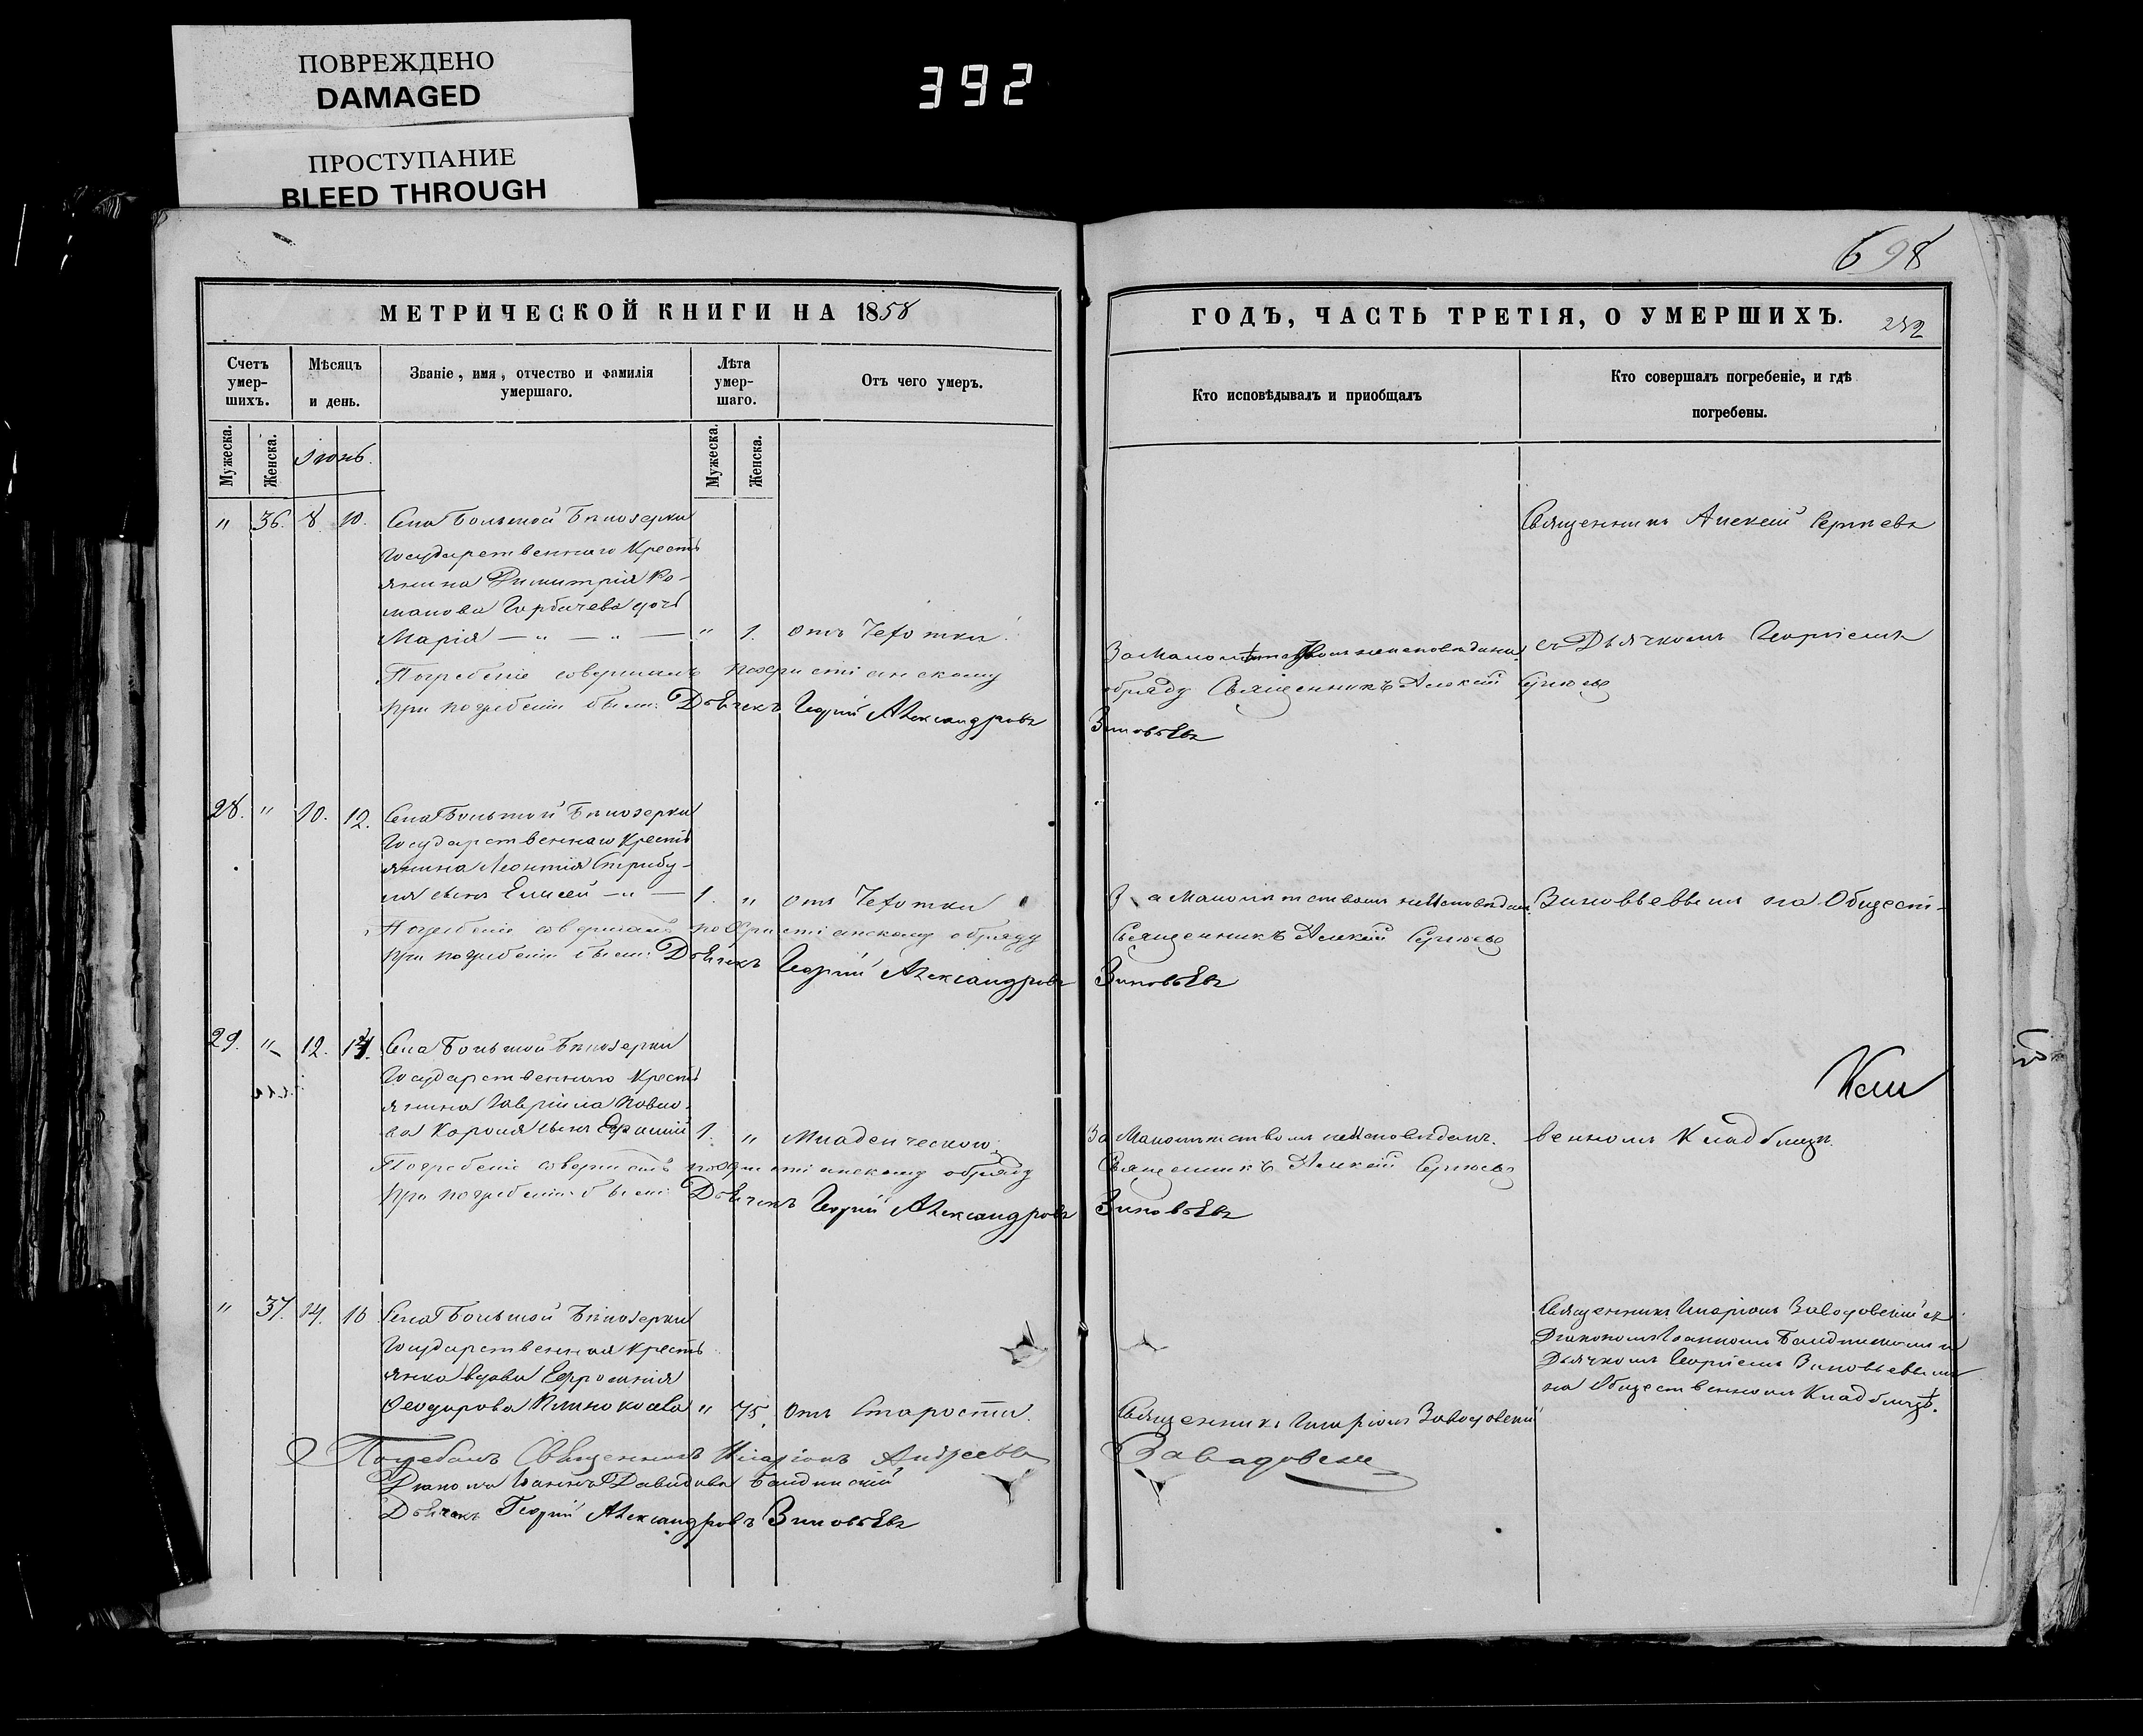 ПОВРЕЖДЕНО
DAMAGED
ПРОСТУПАНИЕ
BLEED THROUGH
392
МЕТРИЧЕСКОЙ КНИГИ НА 1858
Счетъ умер-шихъ.
Мѣсяцъ и день.
Званіе, имя, отчество и фамилія умершаго.
Лѣта умер-шаго.
Отъ чего умеръ.
Мужеска.
Женска.
Іюнь.
Мужеска.
Женска.
" 36. 8 10. Села Большой Бѣлозерки
Государственнаго Кресть
янина Димитрія Ро-
манова Горбачева дочь
Марія — " — " — " 1. отъ Чехотки
Погребеніе совершалъ по Христіанскому
при погребеніи были: Дьячекъ Георгій Александровъ
28. " 10. 12. Села Большой Бѣлозерки
Государственнаго Кресть
янина Леонтія Стрибу-
ля сынъ Елисей — " — 1. " отъ Чехотки
Погребеніе совершалъ по Христіанскому обряду
при погребеніи были: Дьячекъ Георгій Александровъ
29. " 12. 14. Села Большой Бѣлозерки
Государственнаго Кресть
янина Гавріила Павло-
ва Короля сынъ 1. " Младенческой
Погребеніе совершалъ по Христіанскому обряду
при погребеніи были: Дьячекъ Георгій Александровъ
" 37. 14. 16 Села Большой Бѣлозерки
Государственная кресть
янка вдова Евфросинія
Феодорова " 75. отъ Старости.
Погребалъ Священникъ Иларіонъ Андреевъ
Діаконъ Іоаннъ Давидовъ
Дьячекъ Георгій Александровъ Зиновьевъ
698
ГОДЪ, ЧАСТЬ ТРЕТІЯ, О УМЕРШИХЪ.
Кто исповѣдывалъ и пріобщалъ
Кто совершалъ погребеніе, и гдѣ погребены.
Священникъ Алексій Сергѣевъ
За малолѣтствомъ неисповѣдана. съ Дьячкомъ Георгіемъ
обряду Священникъ Алексій Сергѣевъ
Зиновьевъ
За малолѣтствомъ неисповѣданъ. Зиновьевымъ на Общест-
Священникъ Алексій Сергѣевъ
Зиновьевъ
За малолѣтствомъ неисповѣданъ. венномъ Кладбищѣ.
Священникъ Алексій Сергѣевъ
Зиновьевъ
Священникъ Иларіонъ Заводовскій съ
Діакономъ Іоанномъ и
Дьячкомъ Георгіемъ Зиновьевымъ
на Общественномъ Кладбищѣ.
Священникъ Иларіонъ Заводовскій
Завадовскій